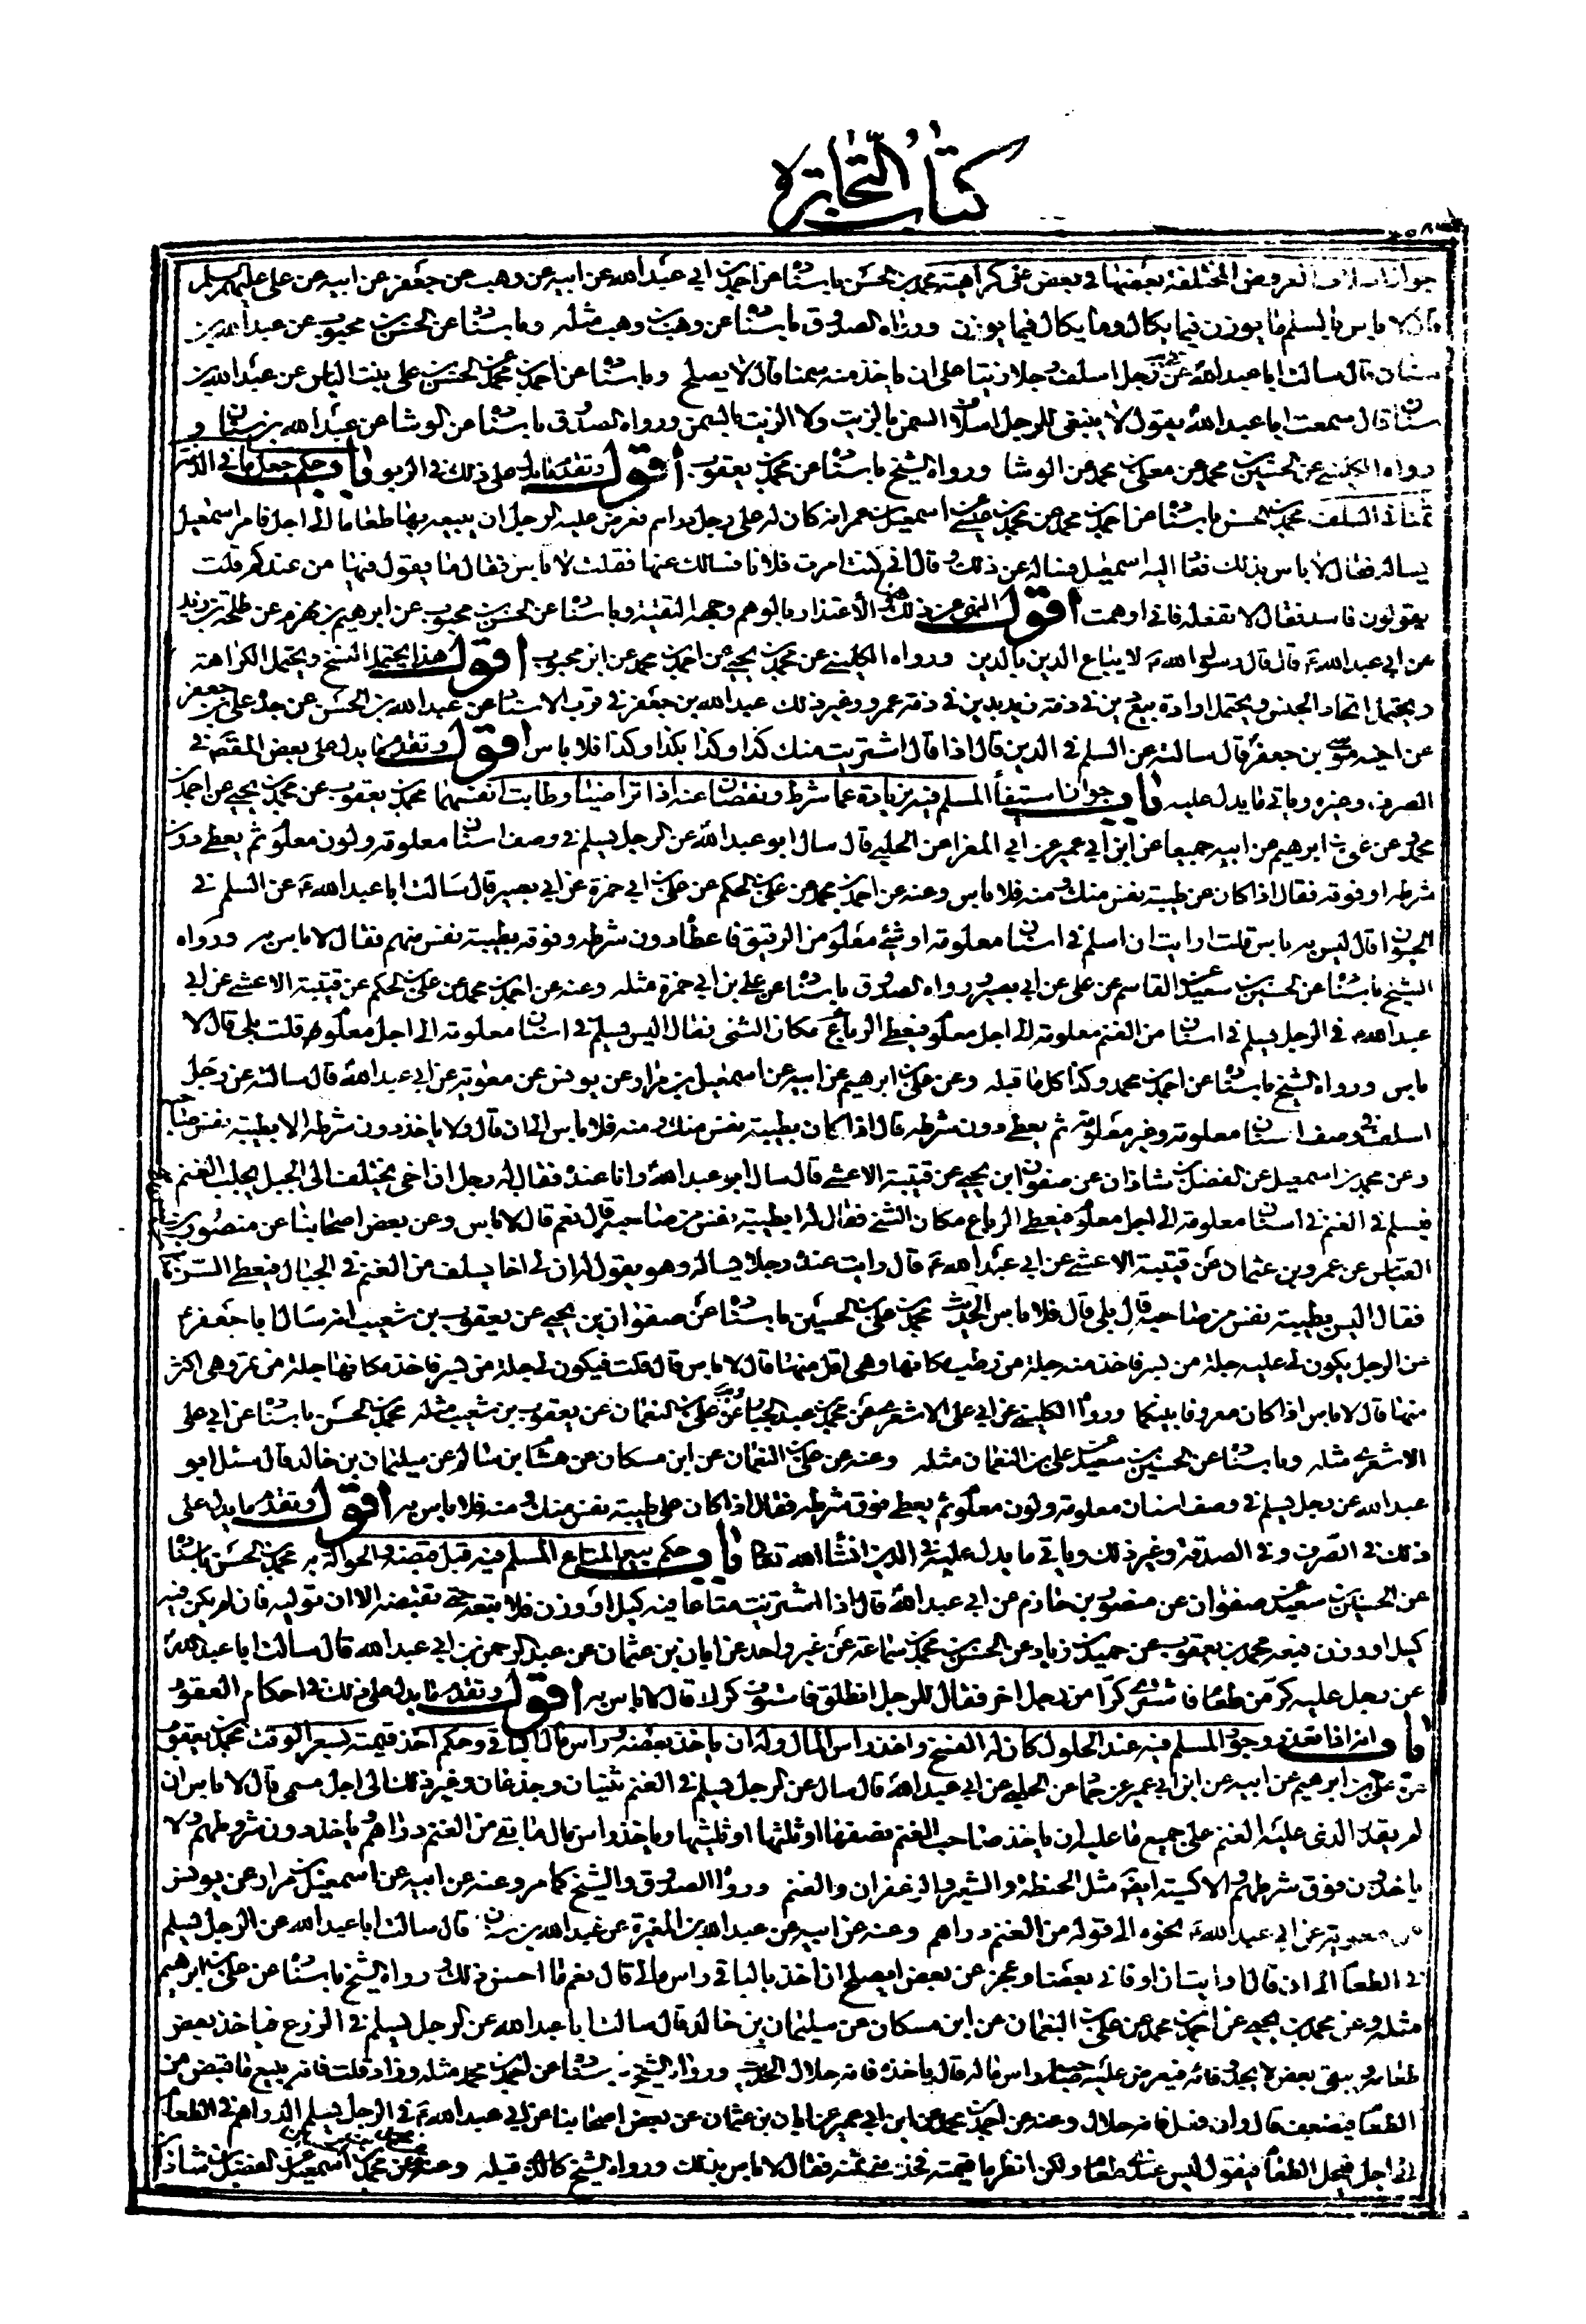 كتاب التجارة
جواز اسلاف العروض المختلفة بعضها في بعض على كراهية محمد بن الحسن باسناده عن احمد بن ابي عبد الله عن ابيه عن وهب عن جعفر عن ابيه عن علي عليهم السلم
قال لا باس بالسلم ما يوزن فيما يكال وما يكال فيما يوزن ورواه الصدوق باسناده عن وهب بن وهب مثله وباسناده عن الحسن بن محبوب عن عبد الله بن
سنان قال سالت ابا عبد الله عن رجل اسلف رجلا زيتا على ان ياخذ منه سمنا قال لا يصلح وباسناده عن احمد بن محمد عن الحسن بن علي بن بنت الياس عن عبد الله بن
سنان قال سمعت ابا عبد الله يقول لا ينبغي للرجل اسلاف السمن بالزيت ولا الزيت بالسمن ورواه الصدوق باسناده عن الوشا عن عبد الله بن سنان و
رواه الكليني عن الحسين بن محمد عن معلى بن محمد عن الوشا ورواه الشيخ باسناده عن محمد بن يعقوب اقول وتقدم ما يدل على ذلك في الربو باب حكم جعل ما في الذمة
ثمنا في السلف محمد بن الحسن باسناده عن احمد بن محمد عن محمد بن عيسى عن اسمعيل بن عمر انه كان له على رجل دراهم فعرض عليه الرجل ان يبيعه بها طعاما الى اجل فامر اسمعيل
يساله فقال لا باس بذلك فعاد اليه اسمعيل فساله عن ذلك وقال اني كنت امرت فلانا فسالك عنها فقلت لا باس فقال ما يقول فيها من عندكم قلت
يقولون فاسد فقال لا تفعله فاني اوهمت اقول النهي عن ذلك الاعتذار بالوهم وجهه التقية وباسناده عن الحسن بن محبوب عن ابرهيم بن مهزم عن طلحة بن زيد
عن ابي عبد الله ع قال قال رسول الله ص لا يباع الدين بالدين ورواه الكليني عن محمد بن يحيى عن احمد بن محمد عن ابن محبوب اقول هذا يحتمل النسخ ويحتمل الكراهة
ويحتمل اتحاد الجنس ويحتمل ارادة بيع دين في ذمة زيد بدين في ذمة عمرو وغير ذلك عبد الله بن جعفر في قرب الاسناد عن عبد الله بن الحسن عن جده علي بن جعفر
عن اخيه موسى بن جعفر قال سالته عن السلم في الدين قال اذا قال اشتريت منك كذا وكذا بكذا وكذا فلا باس اقول وتقدم ما يدل على بعض المقصود في
الصرف وغيره وياتي ما يدل عليه باب جواز استيفاء المسلم فيه بزيادة عما شرط ونقصان عنه اذا تراضيا وطابت انفسهما محمد بن يعقوب عن محمد بن يحيى عن احمد بن
محمد وعن علي بن ابرهيم عن ابيه جميعا عن ابن ابي عمير عن ابي المغرا عن الحلبي قال سال ابو عبد الله عن الرجل يسلم في وصف اسنان معلومة ولون معلوم ثم يعطي دون
شرطه او فوقه فقال اذا كان عن طيبة نفس منك ومنه فلا باس وعنه عن احمد بن محمد عن علي بن الحكم عن علي بن ابي حمزة عن ابي بصير قال سالت ابا عبد الله ع عن السلم في
الحيوان قال ليس به باس قلت ارايت ان اسلم في اسنان معلومة او شيء معلوم من الرقيق فاعطاه دون شرطه وفوقه بطيبة نفس منهم فقال لا باس به ورواه
الشيخ باسناده عن الحسين بن سعيد عن القاسم عن علي عن ابي بصير ورواه الصدوق باسناده عن علي بن ابي حمزة مثله وعنه عن احمد بن محمد عن علي بن الحكم عن قتيبة الاعشى عن ابي
عبد الله ع في الرجل يسلم في اسنان من الغنم معلومة الى اجل معلوم فيعطي الرباع مكان الثني فقال اليس يسلم في اسنان معلومة الى اجل معلوم قلت بلى قال لا
باس ورواه الشيخ باسناده عن احمد بن محمد وكذا كل ما قبله وعن علي بن ابرهيم عن ابيه عن اسمعيل بن مرار عن يونس عن معوية عن ابي عبد الله قال سالته عن رجل
اسلف في وصف اسنان معلومة وغير معلومة ثم يعطي دون شرطه قال اذا كان بطيبة نفس منك ومنه فلا باس الى ان قال ولا ياخذ دون شرطه الا بطيبة نفس صاحبه
وعن محمد بن اسمعيل عن الفضل بن شاذان عن صفوان بن يحيى عن قتيبة الاعشى قال سال ابو عبد الله وانا عنده فقال له رجل ان اخي يختلف الى الجبل يجلب الغنم
فيسلم في الغنم في اسنان معلومة الى اجل معلوم فيعطي الرباع مكان الثني فقال له ابطيبة نفس من صاحبه قال نعم قال لا باس وعن بعض اصحابنا عن منصور بن
العباس عن عمرو بن عثمان عن قتيبة الاعشى عن ابي عبد الله ع قال رايت عنده رجلا يساله وهو يقول له ان لي اخا يسلف من الغنم في الجبال فيعطي السن مكان
فقال اليس بطيبة نفس من صاحبه قال بلى قال فلا باس الحديث محمد بن علي بن الحسين باسناده عن صفوان بن يحيى عن يعقوب بن شعيب انه سال ابا جعفر ع
عن الرجل يكون لي عليه جلة من بسر فاخذ منه جلة من رطب مكانها وهي اقل منها قال لا باس قال قلت فيكون لي جلة من بسر فاخذ مكانها جلة من تمر وهي اكثر
منها قال لا باس اذا كان معروفا بينكما ورواه الكليني عن ابي علي الاشعري عن محمد بن عبد الجبار عن علي بن النعمان عن يعقوب بن شعيب مثله محمد بن الحسن باسناده عن ابي علي
الاشعري مثله وباسناده عن الحسين بن سعيد عن علي بن النعمان مثله وعنه عن علي بن النعمان عن ابن مسكان عن هشام بن سالم عن سليمان بن خالد قال سئل ابو
عبد الله عن رجل يسلم في وصف اسنان معلومة ولون معلوم ثم يعطي فوق شرطه فقال اذا كان على طيبة نفس منك ومنه فلا باس به اقول وتقدم ما يدل على
ذلك في الصرف وفي الصدقة وغير ذلك وياتي ما يدل عليه في الدين انشاء الله تعالى باب حكم بيع المتاع المسلم فيه قبل قبضه والحوالة به محمد بن الحسن باسناده
عن الحسين بن سعيد عن صفوان عن منصور بن حازم عن ابي عبد الله قال اذا اشتريت متاعا فيه كيل او وزن فلا تبعه حتى تقبضه الا ان توليه فان لم يكن فيه
كيل او وزن فبعه محمد بن يعقوب عن حميد بن زياد عن الحسن بن محمد بن سماعة عن غير واحد عن ابان بن عثمان عن عبد الرحمن بن ابي عبد الله قال سالت ابا عبد الله
عن رجل عليه كر من طعام فاشترى كرا من رجل اخر فقال للرجل انطلق فاستوف كرك قال لا باس به اقول وتقدم ما يدل على ذلك في احكام العقود
باب انه اذا تعذر وجود المسلم فيه عند الحلول كان له الفسخ واخذ راس المال وله ان ياخذ بعضه وراس مال الباقي وحكم اخذ قيمته بسعر الوقت محمد بن يعقوب
عن علي بن ابرهيم عن ابيه عن ابن ابي عمير عن حماد عن الحلبي عن ابي عبد الله قال سال عن الرجل يسلم في الغنم ثنيان وجذعان وغير ذلك الى اجل مسمى قال لا باس ان
لم يقدر الذي عليه الغنم على جميع ما عليه ان ياخذ صاحب الغنم نصفها او ثلثها او ثلثيها وياخذ راس مال ما بقي من الغنم دراهم وياخذ دون شروطهم ولا
ياخذون فوق شرطهم والاكسية ايضا مثل الحنطة والشعير والزعفران والغنم ورواه الصدوق والشيخ كما مر وعنه عن ابيه عن اسمعيل بن مرار عن يونس
عن معوية عن ابي عبد الله ع نحوه الى قوله من الغنم دراهم وعنه عن ابيه عن عبد الله بن المغيرة عن عبد الله بن سنان قال سالت ابا عبد الله عن الرجل يسلم
في الطعام الى ان قال ارايت ان اوفاني بعضا وعجز عن بعض ايصلح ان اخذ بالباقي راس مالي قال نعم ما احسن ذلك ورواه الشيخ باسناده عن علي بن ابرهيم
مثله وعن محمد بن يحيى عن احمد بن محمد عن علي بن النعمان عن ابن مسكان عن سليمان بن خالد قال سالت ابا عبد الله عن الرجل يسلم في الزرع فياخذ بعض
طعامه ويبقى بعض لا يجد وفاءه فيعرض عليه صاحبه راس ماله قال ياخذه فانه حلال الحديث ورواه الشيخ باسناده عن احمد بن محمد مثله وزاد قلت فانه يبيع ما قبض من
الطعام فيضعف قال وان فعل فانه حلال وعنه عن احمد بن محمد عن ابن ابي عمير عن ابان بن عثمان عن بعض اصحابنا عن ابي عبد الله ع في الرجل يسلم الدراهم في الطعام
الى اجل فيحل الطعام فيقول ليس عندي طعام ولكن انظر ما قيمته فخذ مني ثمنه فقال لا باس بذلك ورواه الشيخ كالذي قبله وعنه عن محمد بن اسمعيل عن الفضل بن شاذان